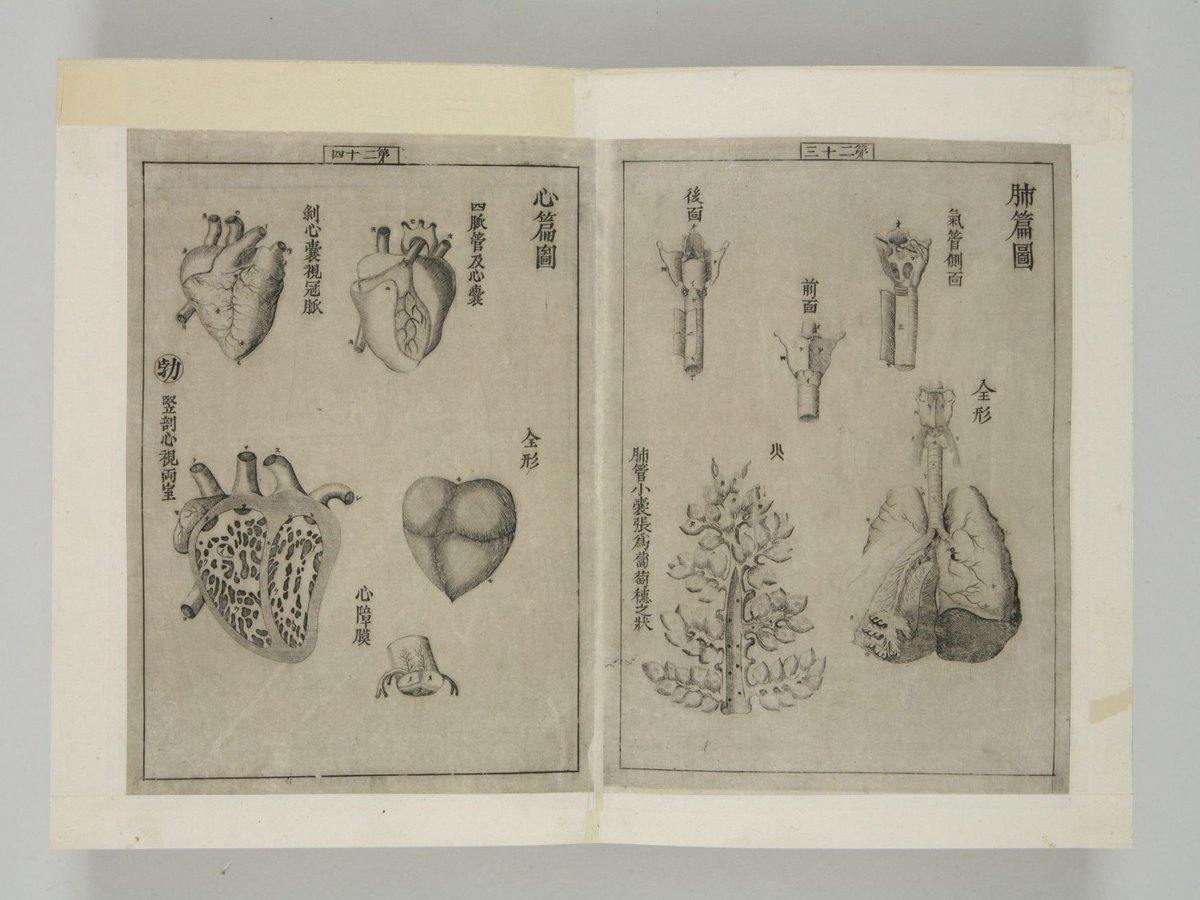 第二十三
肺篇圖
氣管側面
前面
後面
全形
肺管小囊張為葡萄穗之狀
第二十四
心篇圖
四脈管及心囊
剝心囊視冠脈
全形
勃
竪剖心視両室
心障膜